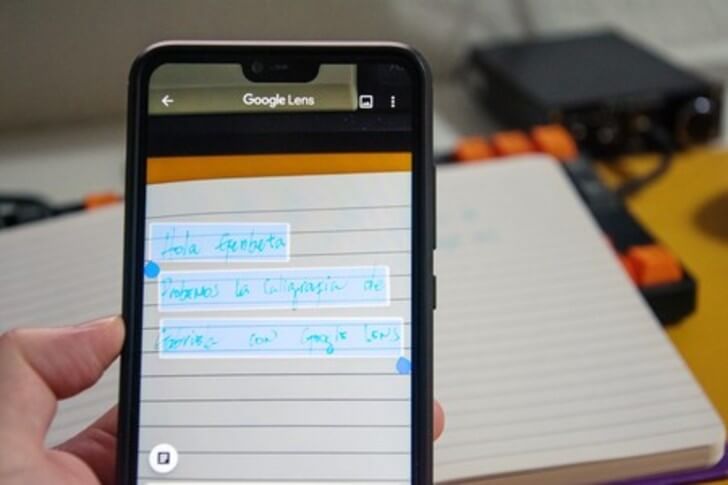 Google Lens
Hola Genbeta
Probemos la Caligrafía de
con Google Lens